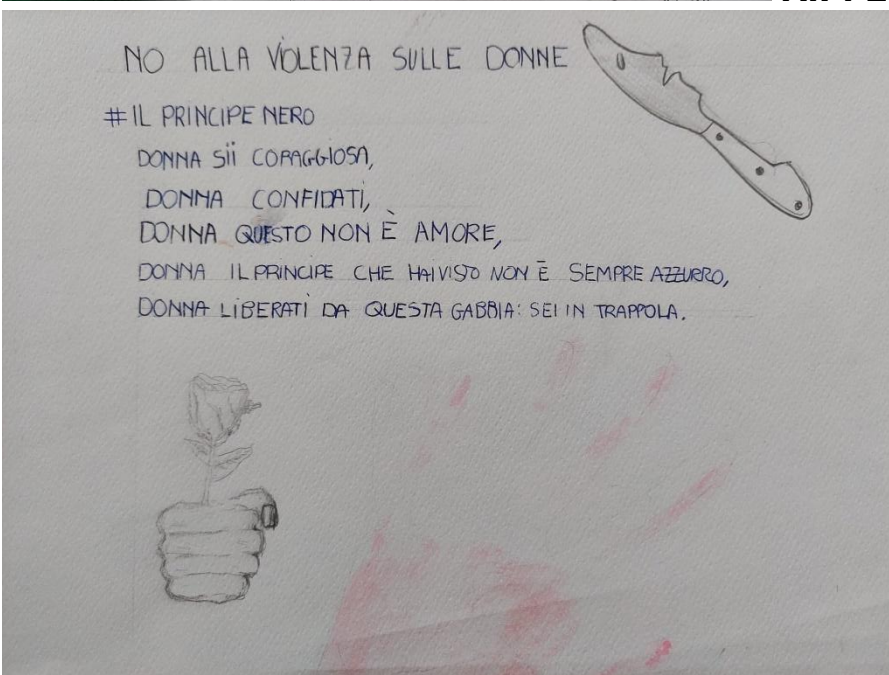 NO ALLA VIOLENZA SULLE DONNE
#IL PRINCIPE NERO
DONNA SII CORAGGIOSA,
DONNA CONFIDATI,
DONNA QUESTO NON È AMORE,
DONNA IL PRINCIPE CHE HAI VISTO NON È SEMPRE AZZURRO,
DONNA LIBERATI DA QUESTA GABBIA: SEI IN TRAPPOLA.